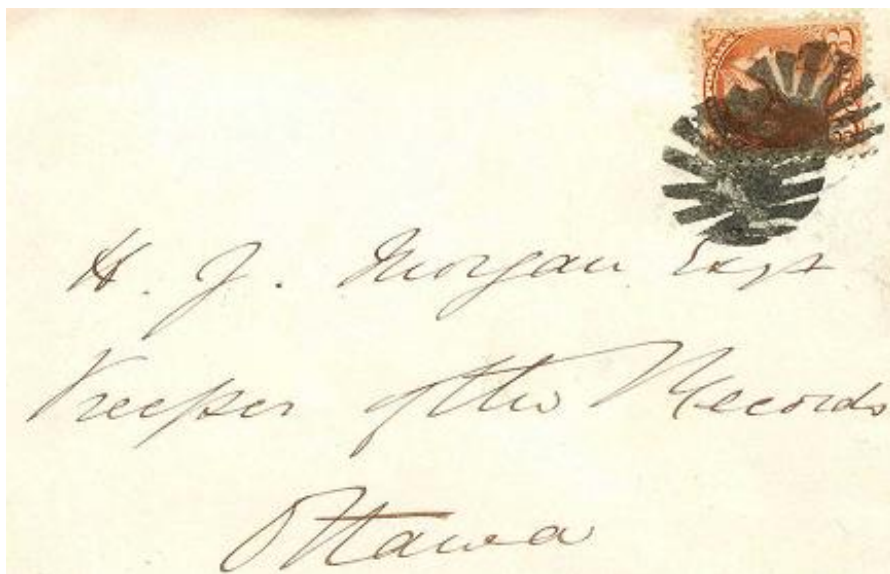 H. J. Morgan Esqr
Keeper of the Records
Ottawa